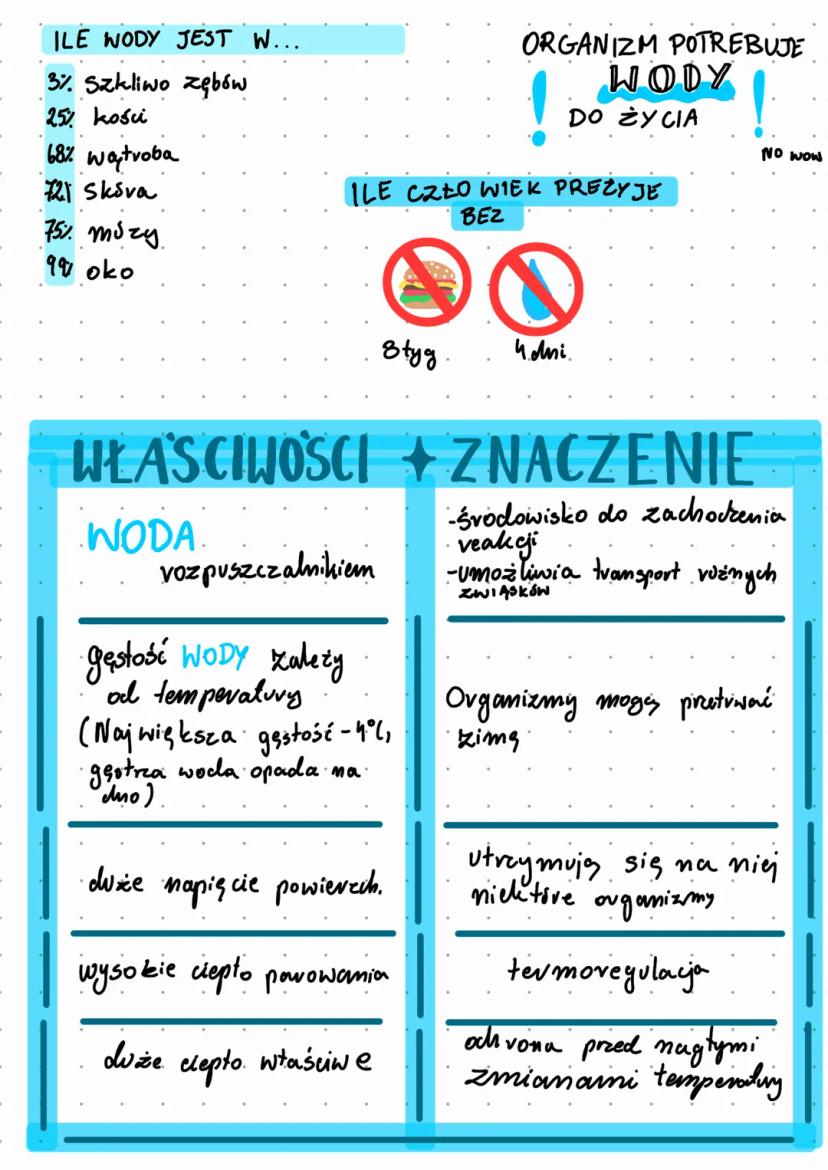 ILE WODY JEST W...
3% szkliwo zębów
25% kości
68% wątroba
72% skóra
75% mózg
99% oko
ORGANIZM POTREBUJE
WODY
DO ŻYCIA
! !
NO WOW
ILE CZŁOWIEK PREŻYJE
BEZ
8 tyg
4 dni
WŁAŚCIWOŚCI ✦ ZNACZENIE
WODA
rozpuszczalnikiem
-środowisko do zachodzenia
reakcji
-umożliwia transport różnych
ZWIĄSKÓW
gęstość WODY zależy
od temperatury
(Największa gęstość - 4°C,
gęstrza woda opada na
dno)
Organizmy mogą przetrwać
zimą
duże napięcie powierzch.
utrzymują się na niej
niektóre organizmy
wysokie ciepło parowania
termoregulacja
duże ciepło właściwe
ochrona przed nagłymi
zmianami temperatury